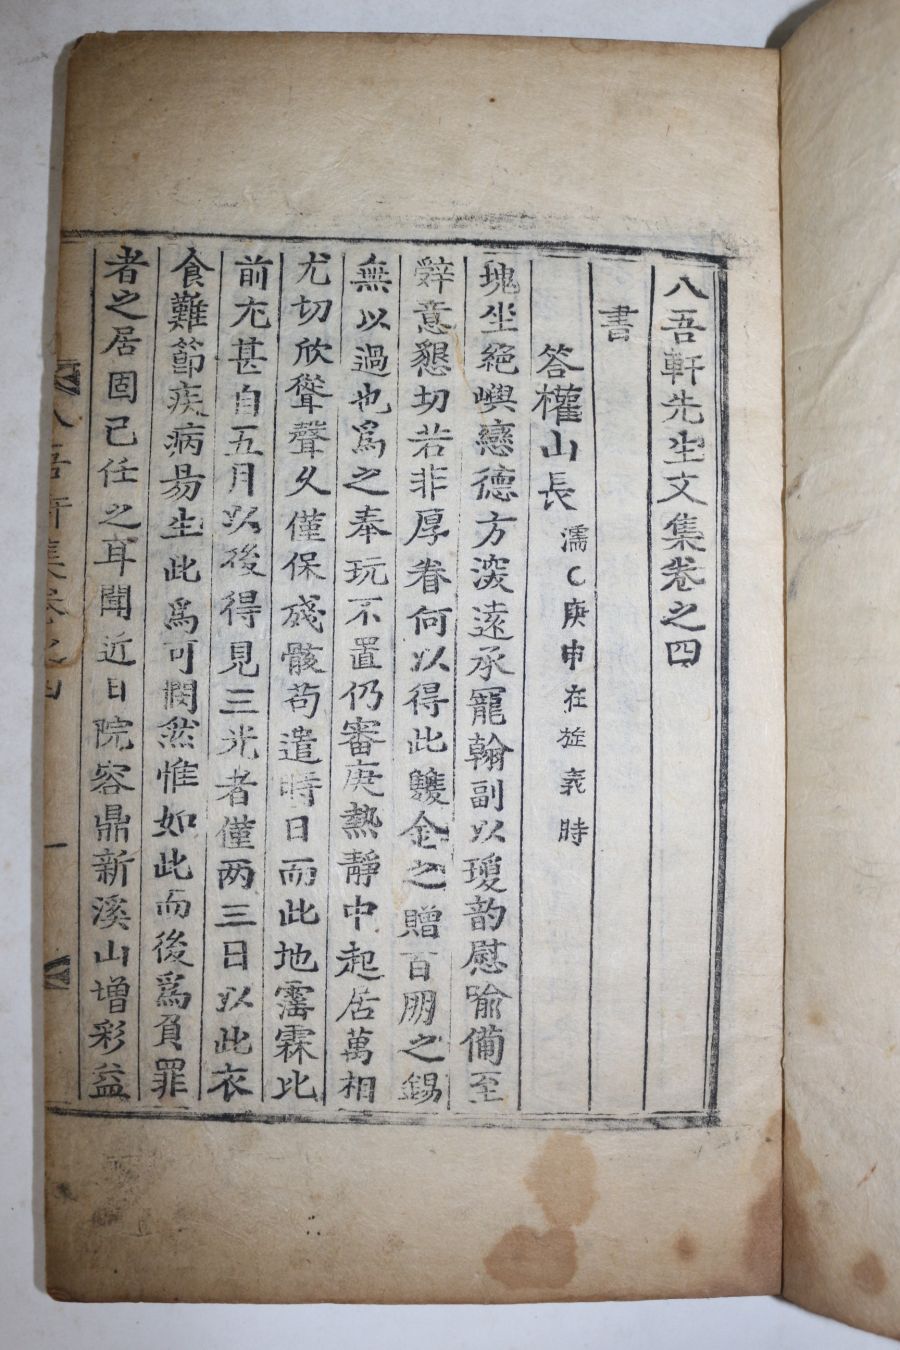 八吾軒先生文集卷之四
書
答權山長 濡〇庚申在旌義時
塊坐絕嶼戀德方深遠承寵翰副以瓊韵慰喩備至
辭意懇切若非厚眷何以得此雙金之贈百朋之錫
無以過也爲之奉玩不置仍審庚熱靜中起居萬相
尤切欣聳聲久僅保殘骸苟遣時日而此地霪霖比
前尤甚自五月以後得見三光者僅两三日以此衣
食難節疾病易生此爲可悶然惟如此而後爲負罪
者之居固已任之耳聞近日院容鼎新溪山增彩益
八吾軒集卷之四 一